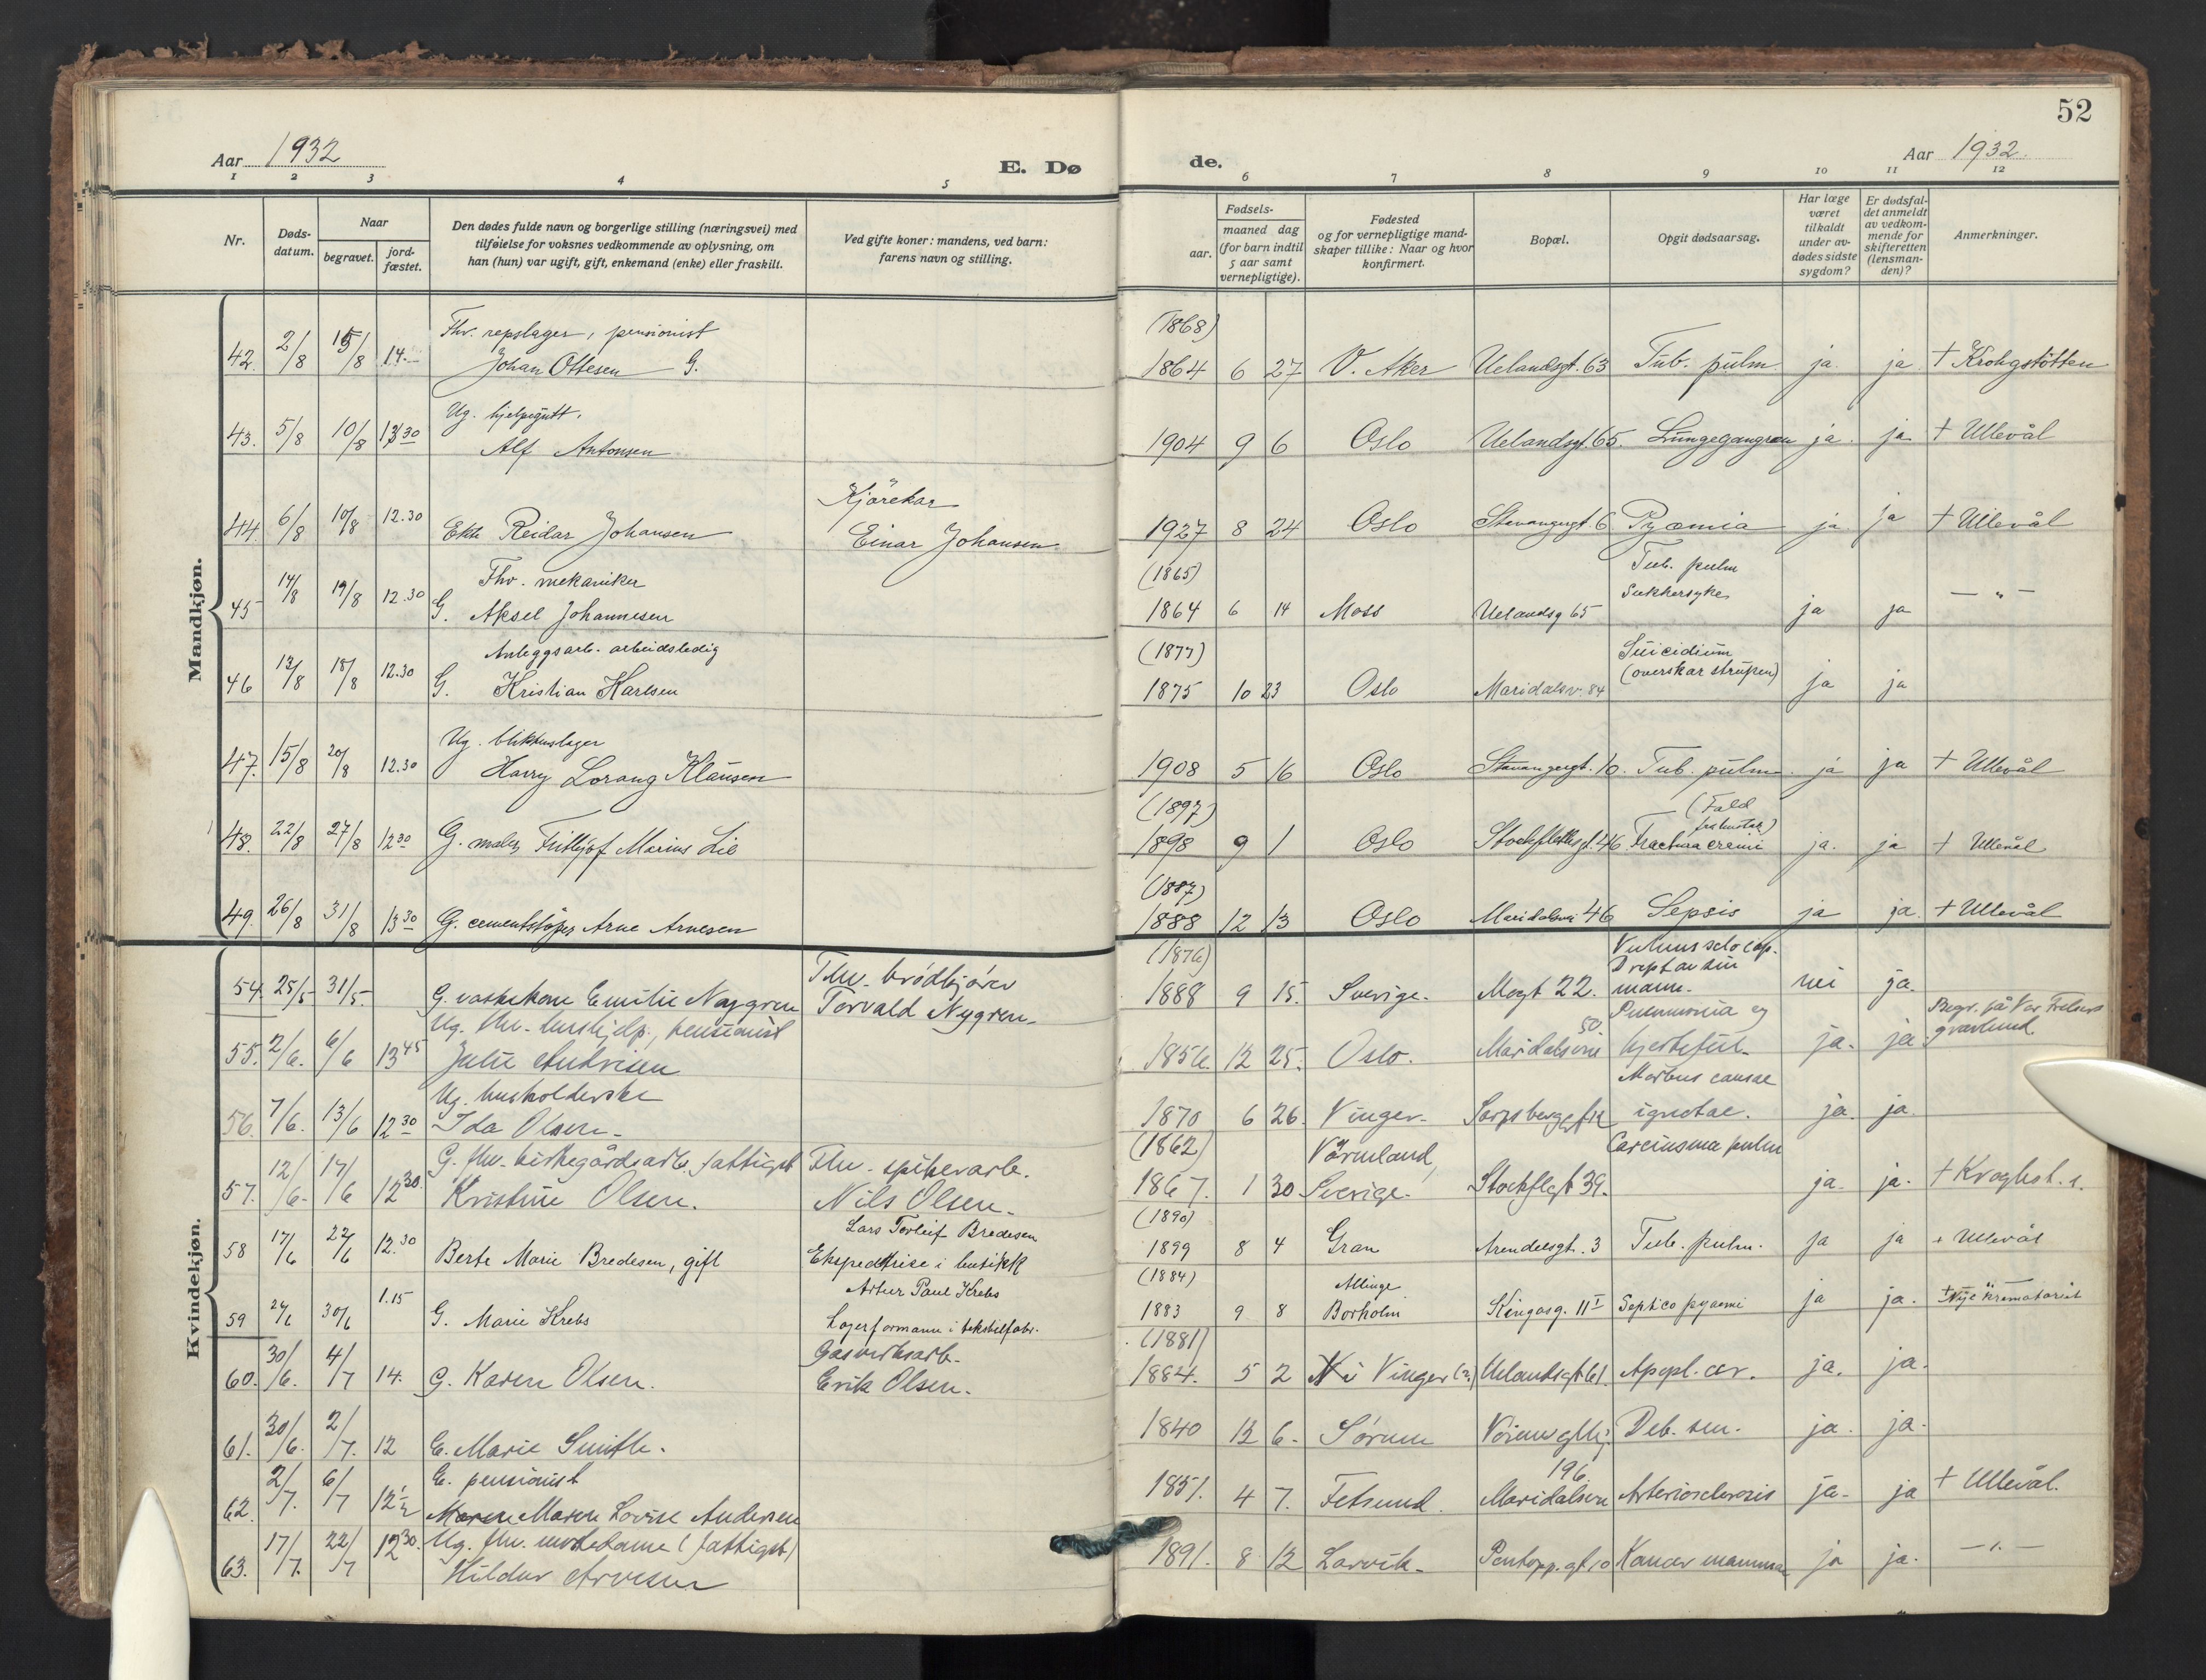 52
Aar 1932
E. Dø
de.
Aar 1932.
1 2 3 4 5 6 7 8 9 10 11 12
Nr.
Døds-
datum.
Naar
begravet.
jord-
fæstet.
Den dødes fulde navn og borgerlige stilling (næringsvei) med
tilføielse for voksnes vedkommende av oplysning, om
han (hun) var ugift, gift, enkemand (enke) eller fraskilt.
Ved gifte koner: mandens, ved barn:
farens navn og stilling.
Fødsels-
aar.
maaned dag
(for barn indtil
5 aar samt
vernepligtige).
Fødested
og for vernepligtige mand-
skaper tillike: Naar og hvor
konfirmert.
Bopæl.
Opgit dødsaarsag.
Har læge
været
tilkaldt
under av-
dødes sidste
sygdom?
Er dødsfal-
det anmeldt
av vedkom-
mende for
skifteretten
(lensman-
den)?
Anmerkninger.
Mandkjøn.
Thv. repslager, pensionist (1868)
42. 2/8 15/8 14.- Johan Ottesen G. 1864 6 27 V. Aker Uelandsgt. 63 Tub. pulm. ja. ja + Krohgstötten
Ug. hjelpegutt.
43. 5/8 10/8 13 30 Alf Antonsen 1904 9 6 Oslo Uelandsgt. 65. Lungegangræn ja. ja. + Ullevål
Kjörekar
44. 6/8 10/8 12.30 Ekte Reidar Johansen Einar Johansen 1927 8 24 Oslo Stavangergt. 6 Pyæmia ja. ja + Ullevål
Thv. mekaniker (1865) Tub. pulm
45 14/8 19/8 12.30 G. Aksel Johannesen 1864 6 14 Moss Uelandsg 65 Sukkersyke ja ja — " —
Anleggsarb. arbeidsledig (1877) Suicidium
46 13/8 18/8 12.30 G. Kristian Karlsen 1875 10 23 Oslo Maridalsv. 84 (overskar strupen) ja ja
Ug. blikkenslager
47. 15/8 20/8 12.30 Harry Lorang Klausen 1908 5 16 Oslo Stavangergt. 10. Tub. pulm. ja ja + Ullevål
(1897) (Fald
48. 22/8 27/8 12 30 G. maler Frithjof Marius Lie 1898 9 1 Oslo Stockflethsgt. 46 Fractura cranii ja. ja + Ullevål
(1887)
49. 26/8 31/8 13 30 G. cementstøper Arne Arnesen 1888 12 13 Oslo Maridalsvei 46 Sepsis ja ja. + Ullevål
Kvindekjøn.
Thv. brödkjörer (1876)
54. 25/5 31/5 G. vaskekone Emilie Nygren Torvald Nygren. 1888 9 15. Sverige. 22. Drept av sin mann. nei ja.
Ug. thv. hushjelp, pensionist 50. Pneumonia og Begr. på Vor Frelsers
55. 2/6. 6/6 13 45 Julie 1856. 12 25. Oslo. Maridalsvn hjertefeil. ja. ja gravlund.
Ug. husholderske Morbus causae
56. 7/6. 13/6 12 30 Ida Olsen. 1870 6 26. Vinger. Sarpsborggt ignotae. ja. ja.
G. thv. kirkegårdsarb. fattigst Thv. spikerarb. (1862) Värmland, Carcinoma pulm
57. 12/6. 17/6 12 30. Kristine Olsen. Nils Olsen. 1867. 1 30 Sverige. Stockflgt 39. ja. ja. + Kroghst. s.
Lars Torleif Bredesen (1890)
58 17/6 22/6 12.30 Berte Marie Bredesen, gift Ekspeditrise i butikk 1899 8 4 Gran Arendalsgt. 3 Tub. pulm. ja ja + Ullevål
1.15 Artur Paul Krebs (1884) Allinge
59 24/6 30/6 G. Marie Krebs Lagerformann i tekstilfabr. 1883 9 8 Borholm Kingosg. 11 I Septico pyaemi ja ja. + Nye krematoriet
Gasverksarb. (1881)
60. 30/6. 4/7 14. G. Karen Olsen. Erik Olsen. 1884. 5 2 Vinger (?) Uelandsgt 61. Apopl. cer. ja. ja.
61. 30/6. 2/7. 12 E. Marie Smith. 1840 12 6. Sörum Deb. sen. ja. ja.
E. pensionist 196.
62. 2/7. 6/7 12 1/2 Maren Lovise Andersen 1851. 4 7. Fetsund. Maridalsvn Arteriosclerosis ja. ja + Ullevål.
Ug. thv. motedame (fattigst)
63. 17/7. 22/7 12 30. Hildur Arnesen 1891. 8 12 Larvik. Pontopp.gt 10 Kancer mammae ja ja. — " —